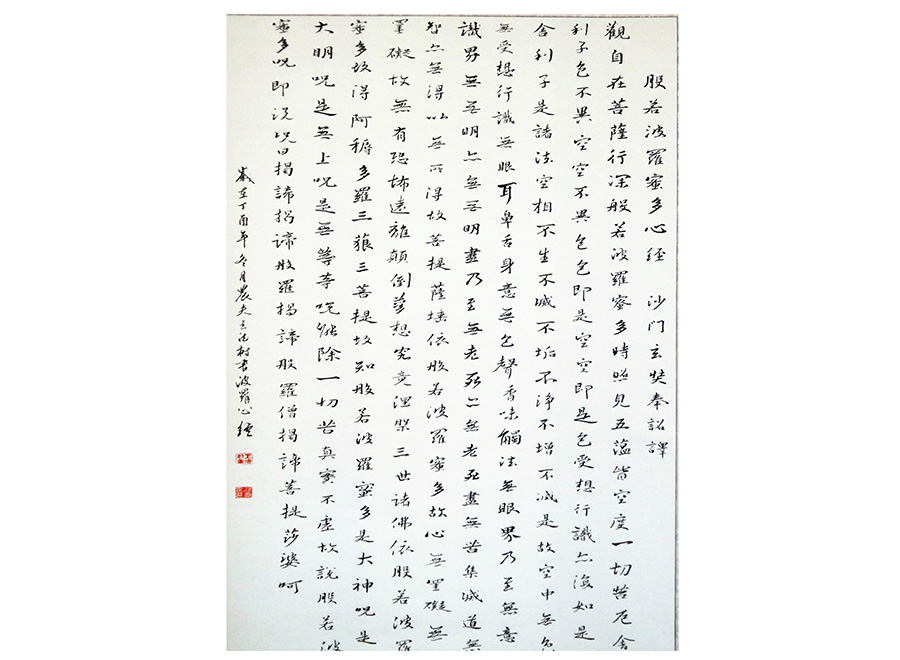 般若波羅蜜多心經 沙门玄奘奉詔譯
觀自在菩薩行深般若波羅蜜多時照見五蘊皆空度一切苦厄舍
利子色不異空空不異色色即是空空即是色受想行識亦復如是
舍利子是諸法空相不生不滅不垢不淨不增不減是故空中無色
無受想行識無眼耳鼻舌身意無色聲香味觸法無眼界乃至無意
識界無無明亦無無明盡乃至無老死亦無老死盡無苦集滅道無
智亦無得以無所得故菩提薩埵依般若波羅蜜多故心無罣礙無
罣礙故無有恐怖遠離顛倒夢想究竟涅槃三世諸佛依般若波羅
蜜多故得阿耨多羅三藐三菩提故知般若波羅蜜多是大神呪是
大明呪是無上呪是無等等呪能除一切苦真實不虛故說般若波
蜜多呪即說呪曰揭諦揭諦般羅揭諦般羅僧揭諦菩提莎婆呵
歲在丁酉年冬月農夫王法村書波羅心經